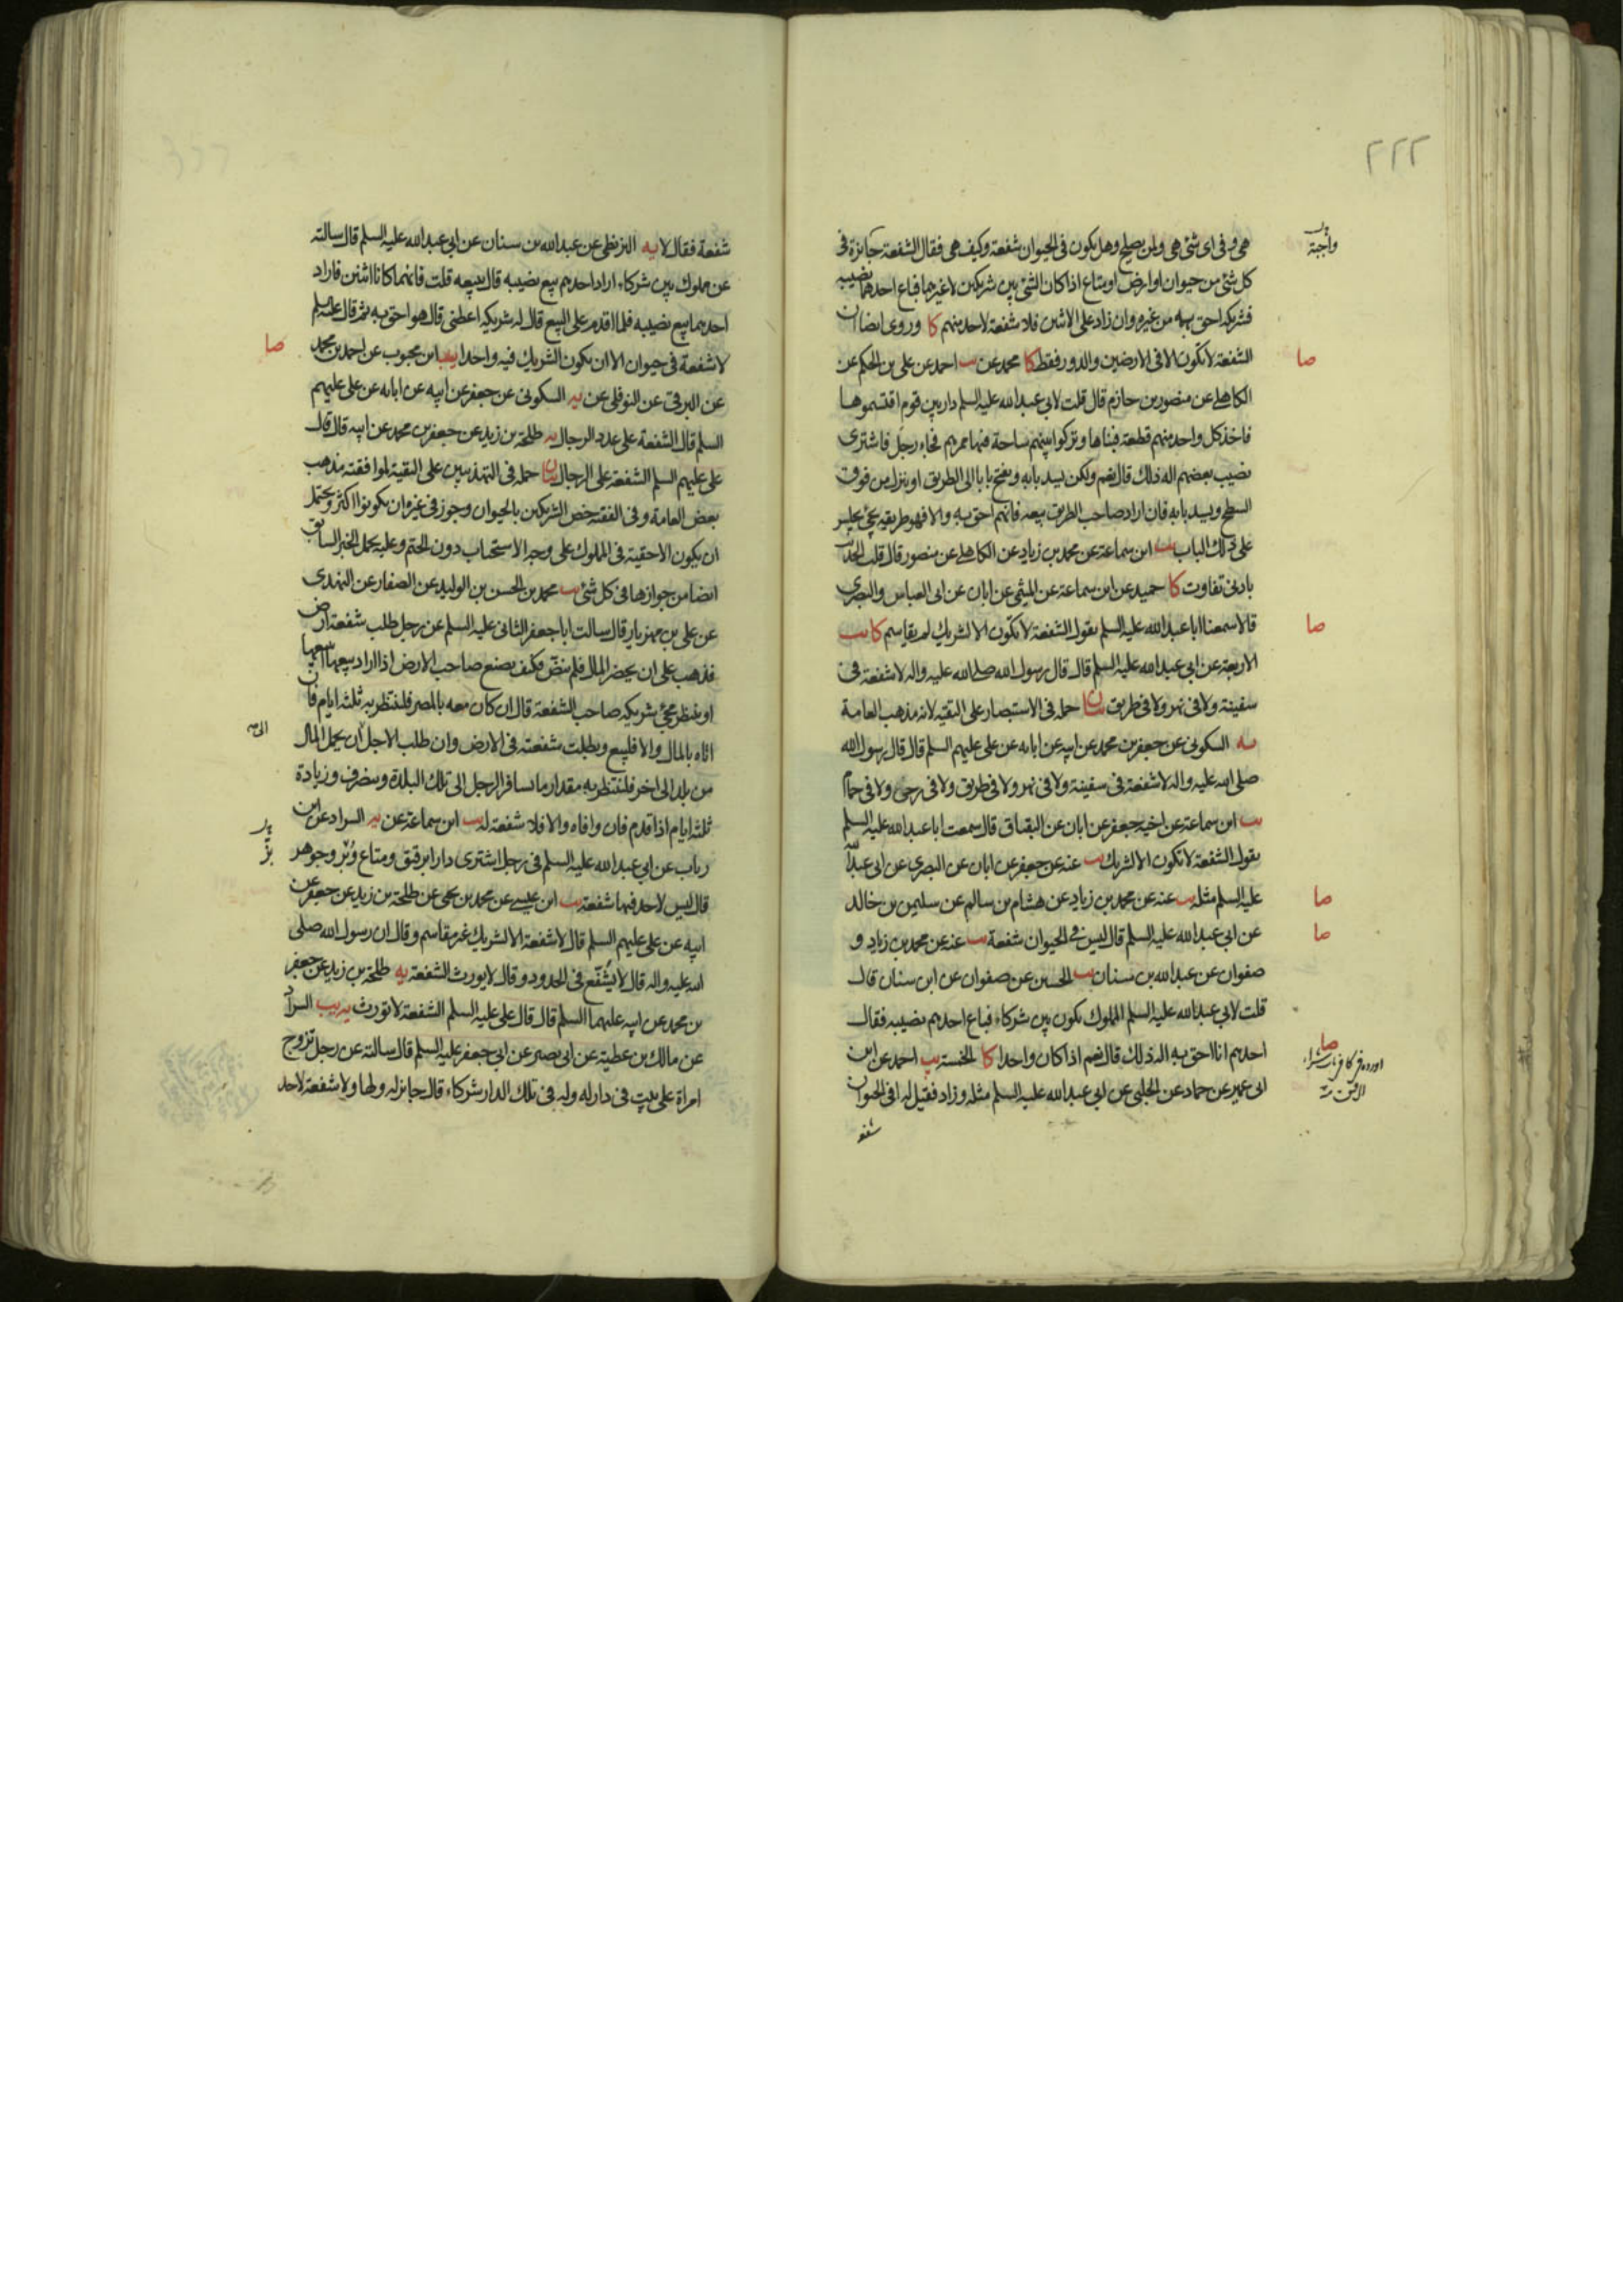 ٢٢٢
هی و فی ای شئ هی ولمن یصلح وهل یکون فی الحیوان شفعة وکیف هی فقال الشفعة جائزة فی
واجبة
کل شئ من حیوان او ارض او متاع اذا کان الشئ بین شریکین لا غیرهما فباع احدهما نصیبه
فشریکه احق به من غیره وان زاد علی الاثنین فلا شفعة لاحد منهم کا وروی ایضا ان
الشفعة لا تکون الا فی الارضین والدور فقط کا محمد عن یب احمد عن علی بن الحکم عن
صا
الکاهلی عن منصور بن حازم قال قلت لابی عبدالله علیه السلم دار بین قوم اقتسموها
فاخذ کل واحد منهم قطعة فبناها وترکوا بینهم ساحة فیها ممرهم فجاء رجل فاشتری
نصیب بعضهم اله ذلک قال نعم ولکن یسد بابه ویفتح بابا الی الطریق او ینزل من فوق
السطح ویسد بابه فان اراد صاحب الطریق بیعه فانهم احق به والا فهو طریقه یجئ یجلس
علی ذلک الباب یب ابن سماعة عن محمد بن زیاد عن الکاهلی عن منصور قال قلت الحدیث
بادنی تفاوت کا حمید عن ابن سماعة عن المیثمی عن ابان عن ابی العباس والبصری
قالا سمعنا ابا عبدالله علیه السلم یقول الشفعة لا تکون الا لشریک لم یقاسم کا یب
صا
الاربعة عن ابی عبدالله علیه السلم قال قال رسول الله صلی الله علیه واله لا شفعة فی
سفینة ولا فی نهر ولا فی طریق بیان حمله فی الاستبصار علی التقیة لانه مذهب العامة
یه السکونی عن جعفر بن محمد عن ابیه عن ابائه عن علی علیهم السلم قال قال رسول الله
صلی الله علیه واله لا شفعة فی سفینة ولا فی نهر ولا فی طریق ولا فی رحی ولا فی حمام
یب ابن سماعة عن اخیه جعفر عن ابان عن البقباق قال سمعت ابا عبدالله علیه السلم
یقول الشفعة لا تکون الا لشریک یب عنه عن جعفر عن ابان عن البصری عن ابی عبدالله
علیه السلم مثله یب عنه عن محمد بن زیاد عن هشام بن سالم عن سلیمن بن خالد
صا
عن ابی عبدالله علیه السلم قال لیس فی الحیوان شفعة یب عنه عن محمد بن زیاد و
صا
صفوان عن عبدالله بن سنان یب الحسین عن صفوان عن ابن سنان قال
قلت لابی عبدالله علیه السلم المملوک یکون بین شرکاء فباع احدهم نصیبه فقال
احدهم انا احق به اله ذلک قال نعم اذا کان واحدا کا الخمسة یب احمد عن ابن
صا
اورده فی کا فی باب شراء
الرقیق
ابی عمیر عن حماد عن الحلبی عن ابی عبدالله علیه السلم مثله وزاد فقیل له افی الحیوان
شفعة فقال لا یه البزنطی عن عبدالله بن سنان عن ابی عبدالله علیه السلم قال سالته
عن مملوک بین شرکاء اراد احدهم بیع نصیبه قال یبیعه قلت فانهما کانا اثنین فاراد
احدهما بیع نصیبه فلما اقدم علی البیع قال له شریکه اعطنی قال هو احق به ثم قال علیه السلم
لا شفعة فی حیوان الا ان یکون الشریک فیه واحدا یب ابن محبوب عن احمد بن محمد
صا
عن البرقی عن النوفلی عن یه السکونی عن جعفر عن ابیه عن ابائه عن علی علیهم
السلم قال الشفعة علی عدد الرجال یه طلحة بن زید عن جعفر بن محمد عن ابیه قال قال
علی علیهم السلم الشفعة علی الرجال بیان حمله فی التهذیبین علی التقیة لموافقته مذهب
بعض العامة وفی الفقیه خص الشریکین بالحیوان وجوز فی غیره ان یکونوا اکثر ویحتمل
ان یکون الاحقیة فی المملوک علی وجه الاستحباب دون الحتم وعلیه یحمل الخبر السابق
ایضا من جوازها فی کل شئ یب محمد بن الحسن بن الولید عن الصفار عن النهدی
عن علی بن مهزیار قال سالت ابا جعفر الثانی علیه السلم عن رجل طلب شفعة ارض
فذهب علی ان یحضر المال فلم ینض فکیف یصنع صاحب الارض اذا اراد بیعها ایبیعها
او ینتظر مجئ شریکه صاحب الشفعة قال ان کان معه بالمصر فلینتظر به ثلثة ایام فان
اتاه بالمال والا فلیبع وبطلت شفعته فی الارض وان طلب الاجل ان یحمل المال
من بلد الی اخر فلینتظر به مقدار ما یسافر الرجل الی تلک البلدة وینصرف وزیادة
ثلثة ایام اذا قدم فان وافاه والا فلا شفعة له یب ابن سماعة عن یه السراد عن ابن
رئاب عن ابی عبدالله علیه السلم فی رجل اشتری دارا برقیق ومتاع وبز وجوهر
بز
قال لیس لاحد فیها شفعة یب ابن عیسی عن محمد بن یحیی عن طلحة بن زید عن جعفر عن
ابیه عن علی علیهم السلم قال لا شفعة الا لشریک غیر مقاسم وقال ان رسول الله صلی
الله علیه واله قال لا یشفع فی الحدود وقال لا یورث الشفعة یه طلحة بن زید عن جعفر
بن محمد عن ابیه علیهما السلم قال قال علی علیه السلم الشفعة لا تورث یه یب السراد
عن مالک بن عطیة عن ابی بصیر عن ابی جعفر علیه السلم قال سالته عن رجل تزوج
امراة علی بیت فی دار له وله فی تلک الدار شرکاء قال جائز له ولها ولا شفعة لاحد